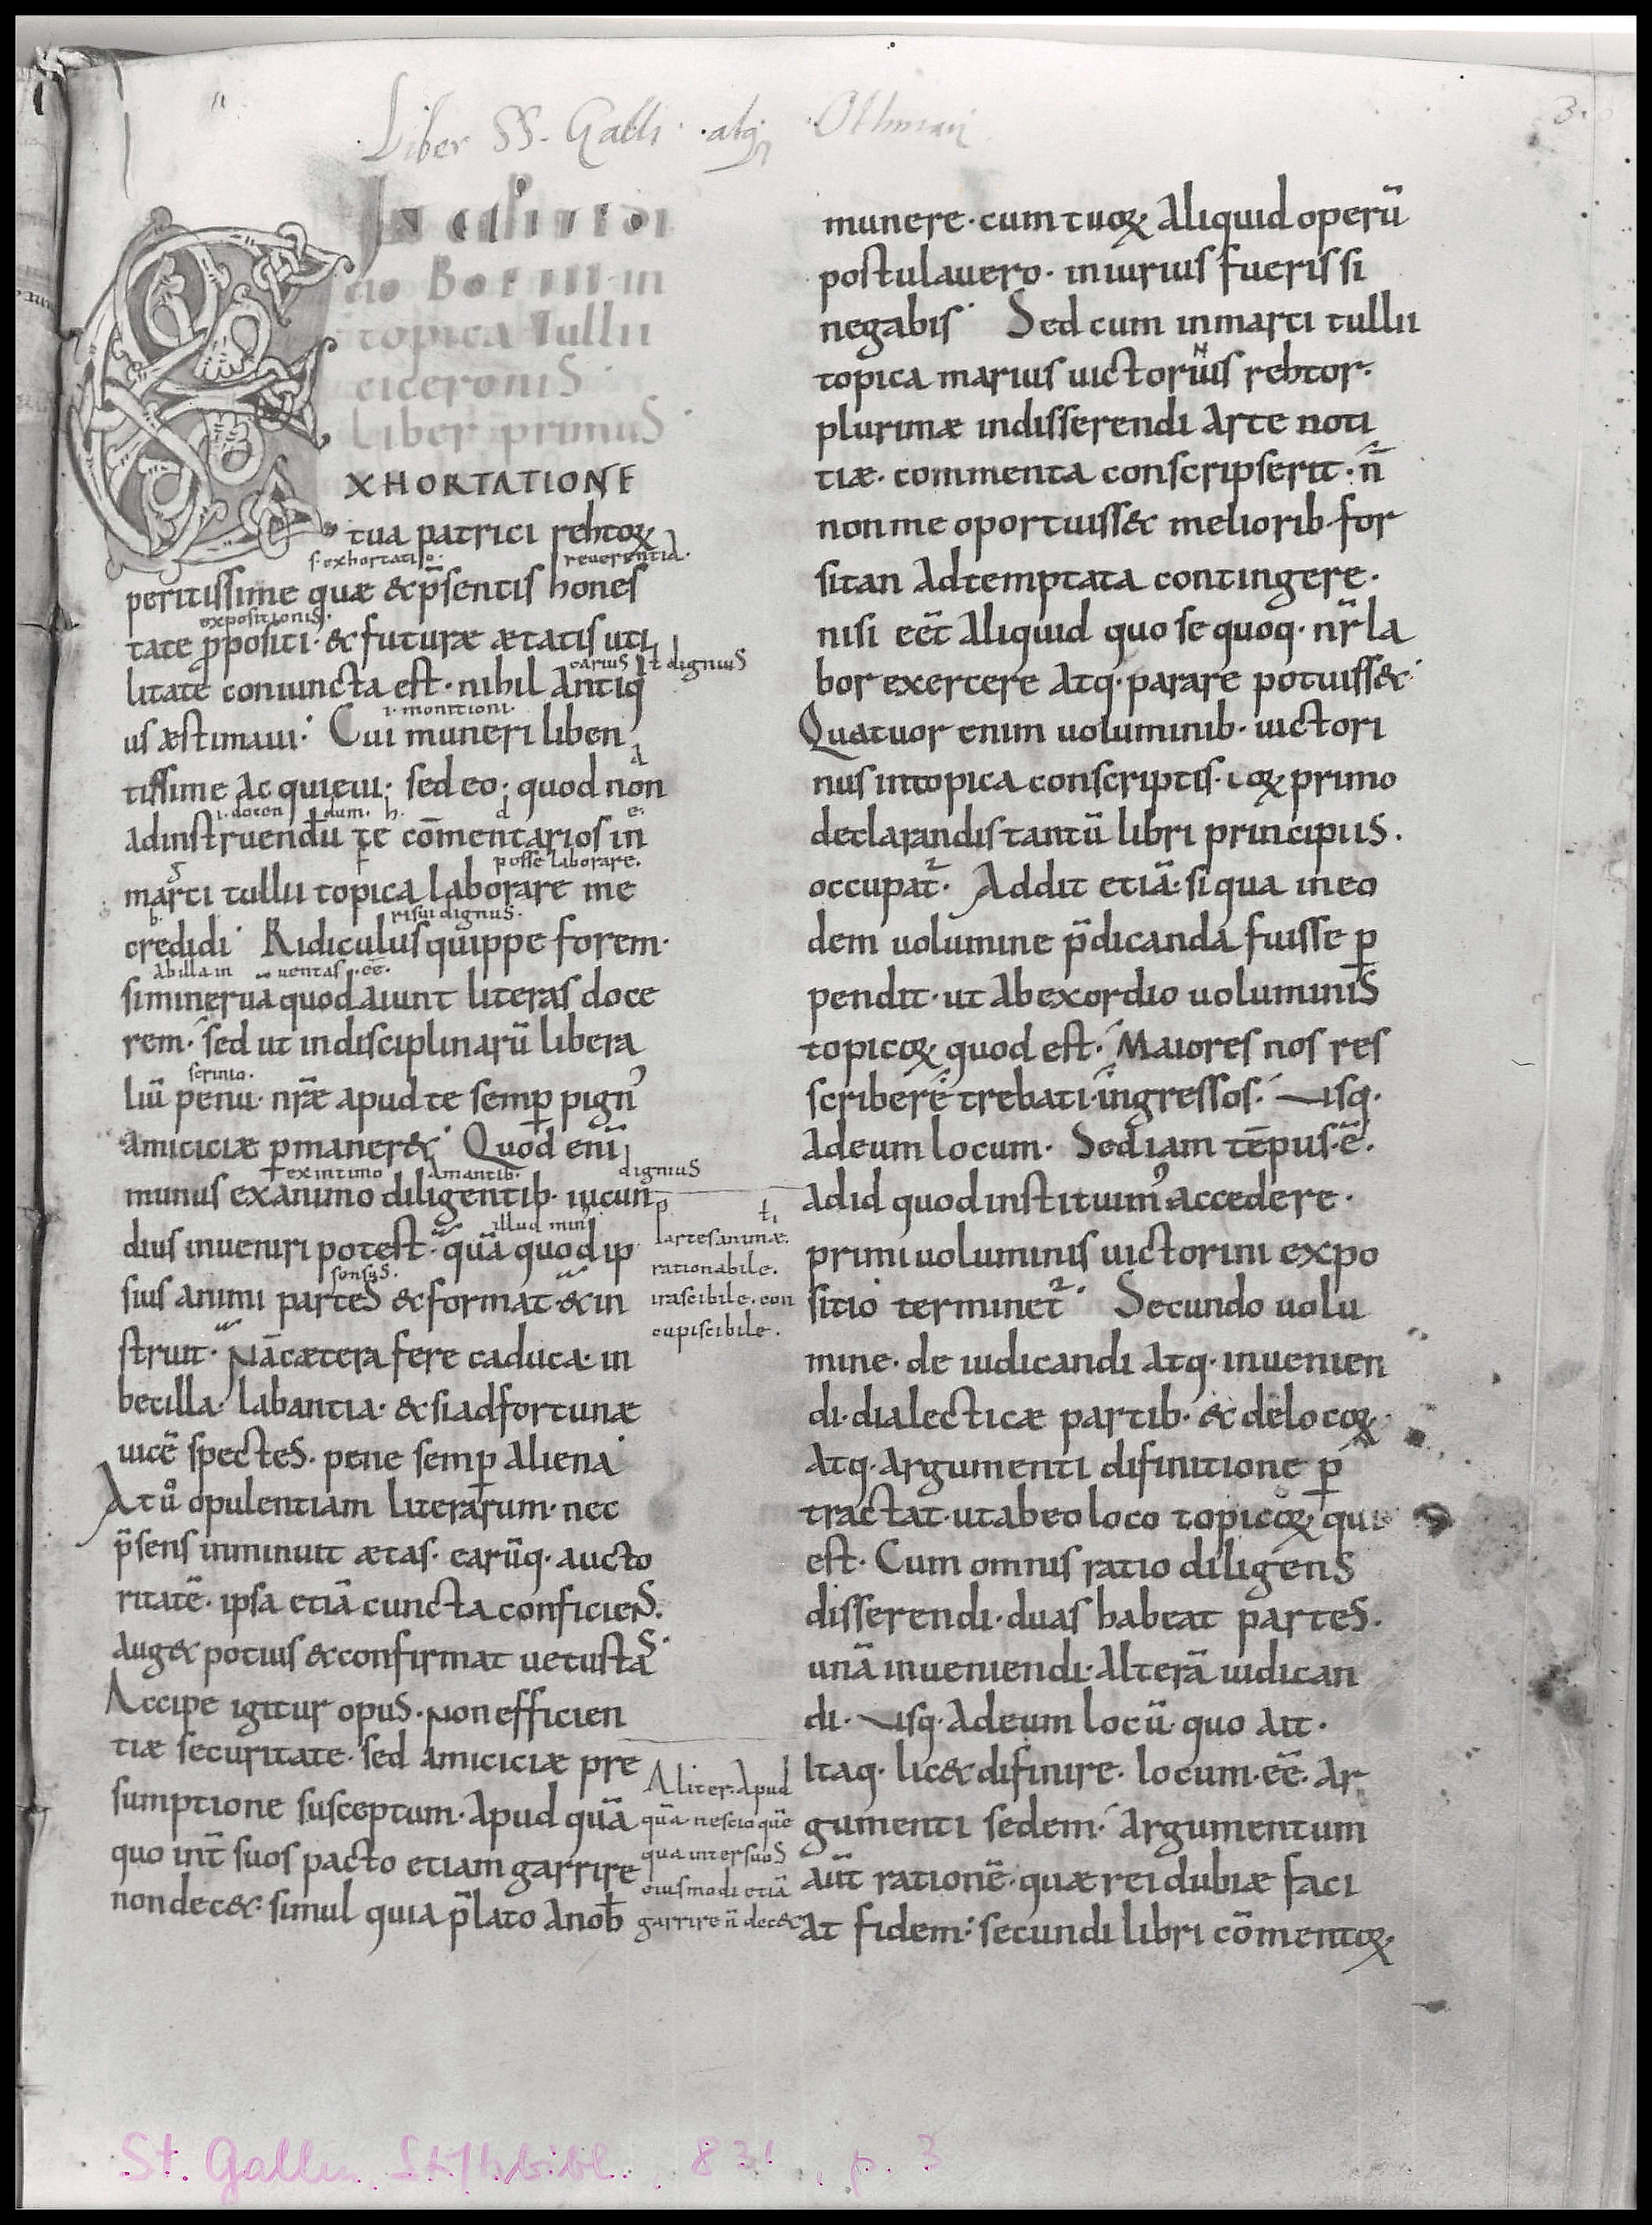 Liber SS. Galli atq Othmari
3.
topica Tullii
ciceroniS
Liber primuS
EXHORTATIONE
tua patrici rehtoꝝ
s. exhortatio. reuerentia.
peritissime quæ & p̃sentis hones
expositioniS.
tate ꝓpositi· & futuræ ætatis uti
carius ł digniuS
litate coniuncta est· nihil antiqͥ
i. monitioni.
us æstimaui· Cui muneri liben
tissime ac quieui; sed eo; quod non
i. docendum. h. d e.
adinstruendū te cōmentarios in
posse laborare.
marci tullii topica laborare me
b. risui dignuS.
credidi· Ridiculus quippe forem·
ab illa inuentas .eē.
siminerua quod aiunt literas doce
rem· sed ut indisciplinarū libera
scrinio.
liū penu· nr̃æ apud te semꝑ pignꝰ
amiciciæ ꝑmaner&· Quod enī
ex intimo amantib· digniuS
munus exanimo diligentib· iucun
illud minꝰ
dius inueniri potest· quā quod ip
sensuS.
sius animi parteS & format· & in
struit· Nā cætera fere caduca· in
becilla· labantia· & siadfortunæ
uicē specteS· pene semꝑ aliena·
At uͦ opulentiam literarum· nec
p̃sens inminuit ætas· earūq· aucto
ritatē· ipsa etiā cuncta conficienS·
aug& potius & confirmat uetustaS·
Accipe igitur opuS· Non efficien
tiæ securitate· sed amiciciæ pre
sumptione susceptum· apud quā
quo int̃ suos pacto etiam garrire
nondec&· simul quia p̃lato anob̄
partes animæ.
rationabile.
irascibile. con
cupiscibile.
Aliter· Apud
quā nescio quē
qua inter suoS
eiusmodi etiā
garrire ñ dec&
munere· cum tuoꝝ aliquid operū
postulauero· iniurius fueris si
negabis· Sed cum inmarci tullii
N
topica marius uictorius rehtor·
plurimæ indisserendi arte noti
tiæ· commenta conscripserit· ñ
non me oportuiss& meliorib· for
sitan adtemptata contingere·
nisi eēt aliquid quo se quoq· nr̃ la
bor exercere atq· parare potuiss&·
Quatuor enim uoluminib· uictori
nus intopica conscriptis· eoꝝ primo
declarandis tantū libri principiiS·
occupat᷑· Addit etiā· si qua in eo
dem uolumine p̃dicanda fuisse ꝑ
pendit· ut ab exordio uoluminiS
topicoꝝ quod est· Maiores nos res
scribere trebati· ingressos· Usq·
adeum locum· Sed iam tēpus·ē·
adid quod instituimꝰ accedere·
primi uoluminis uictorini expo
sitio terminet᷑· Secundo uolu
mine· de iudicandi atq· inuenien
di· dialecticæ partib· & de locoꝝ
atq· argumenti difinitione ꝑ
tractat· ut ab eo loco topicoꝝ qui
est· Cum omnis ratio diligenS
disserendi· duas habeat parteS·
unā inueniendi· alterā iudican
di· Usq· adeum locū· quo ait·
Itaq· lic& difinire· locum·eē· ar
gumenti sedem· argumentum
aūt rationē· quæ rei dubiæ faci
at fidem· secundi libri cōmentoꝝ
St. Gallen, Stiftsbibl., 831, p. 3